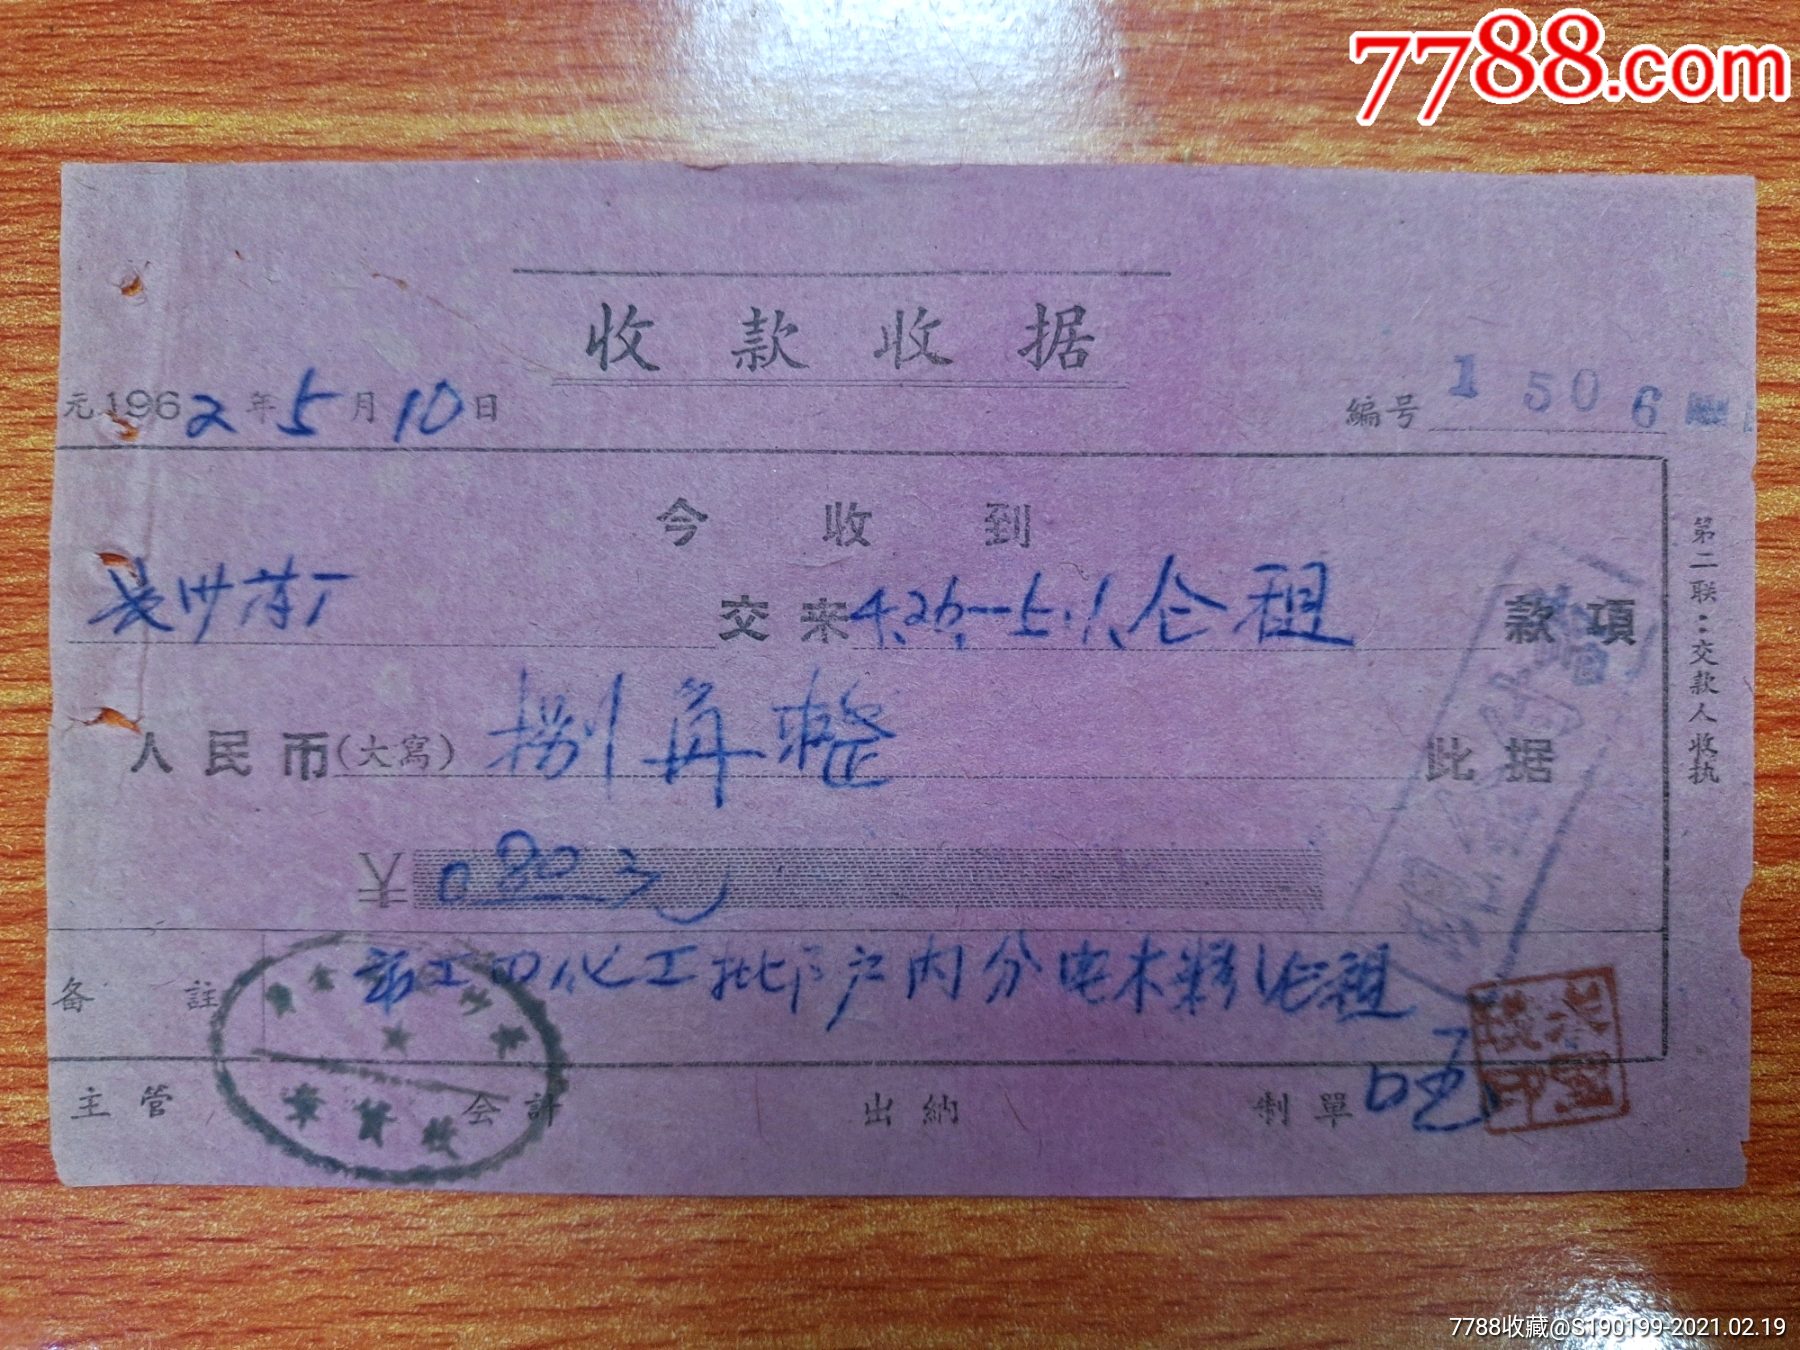 7788.com
收款收据
元1962年5月10日
编号 1506
今收到
长沙 交来4.26-5.1.仓租款項
人民币(大寫)捌角整 此据
￥0.80元
备註 化工批 户内分电木粉仓租
主管 会計 出納 制單
第二联:交款人收执
现金付
印
7788收藏@S190199-2021.02.19